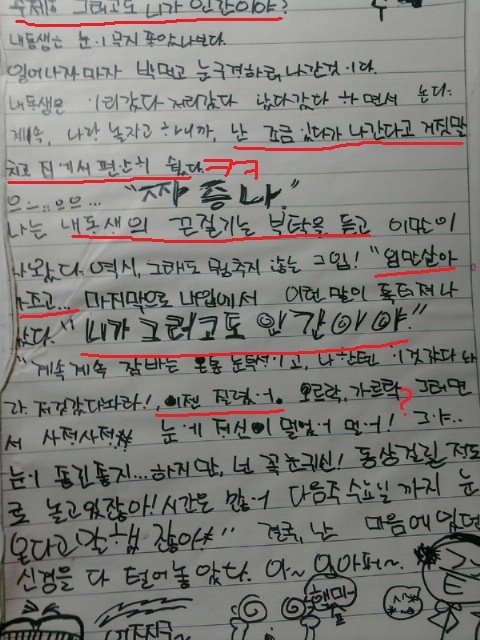 주제: 그러고도 니가 인간이야?
내동생은 눈이 무지 좋았나보다.
일어나자마자 밥먹고 눈구경하러 나간것이다.
내동생은 이리갔다 저리갔다 왔다갔다 하면서 논다.
계속, 나랑 놀자고 하니까, 난 조금 있다가 나간다고 거짓말
치고 집에서 편안히 쉈다. ㅋㅋ
으-..으으... "짜증나."
나는 내동생의 끈질기는 부탁을 듣고 이만이
나왔다. 역시, 그래도 멈추지 않는 그입! "엄만살아
마지막으로 내입에서 이런 말이 툭터져나
"니가 그러고도 인간이야."
"계속계속 감빠는 온통 눈탁성이고, 나한텐 이것갔다 놔
라 저것갔다놔라!, 이젠 질렸어. 오르락, 가르락? 그러면
서 사적사적 눈에 정신이 멀었어 멀어! 그야..
눈이 좋긴좋지... 하지만, 넌 꼭 눈귀신! 동상걸릴 정도
로 놀고있잖아! 시간은 많어 다음주 수요일 까지 눈
온다고 말했잖아" 결국, 난 마음에 있던
신경을 다 털어놓았다. 아~ 입아퍼~.